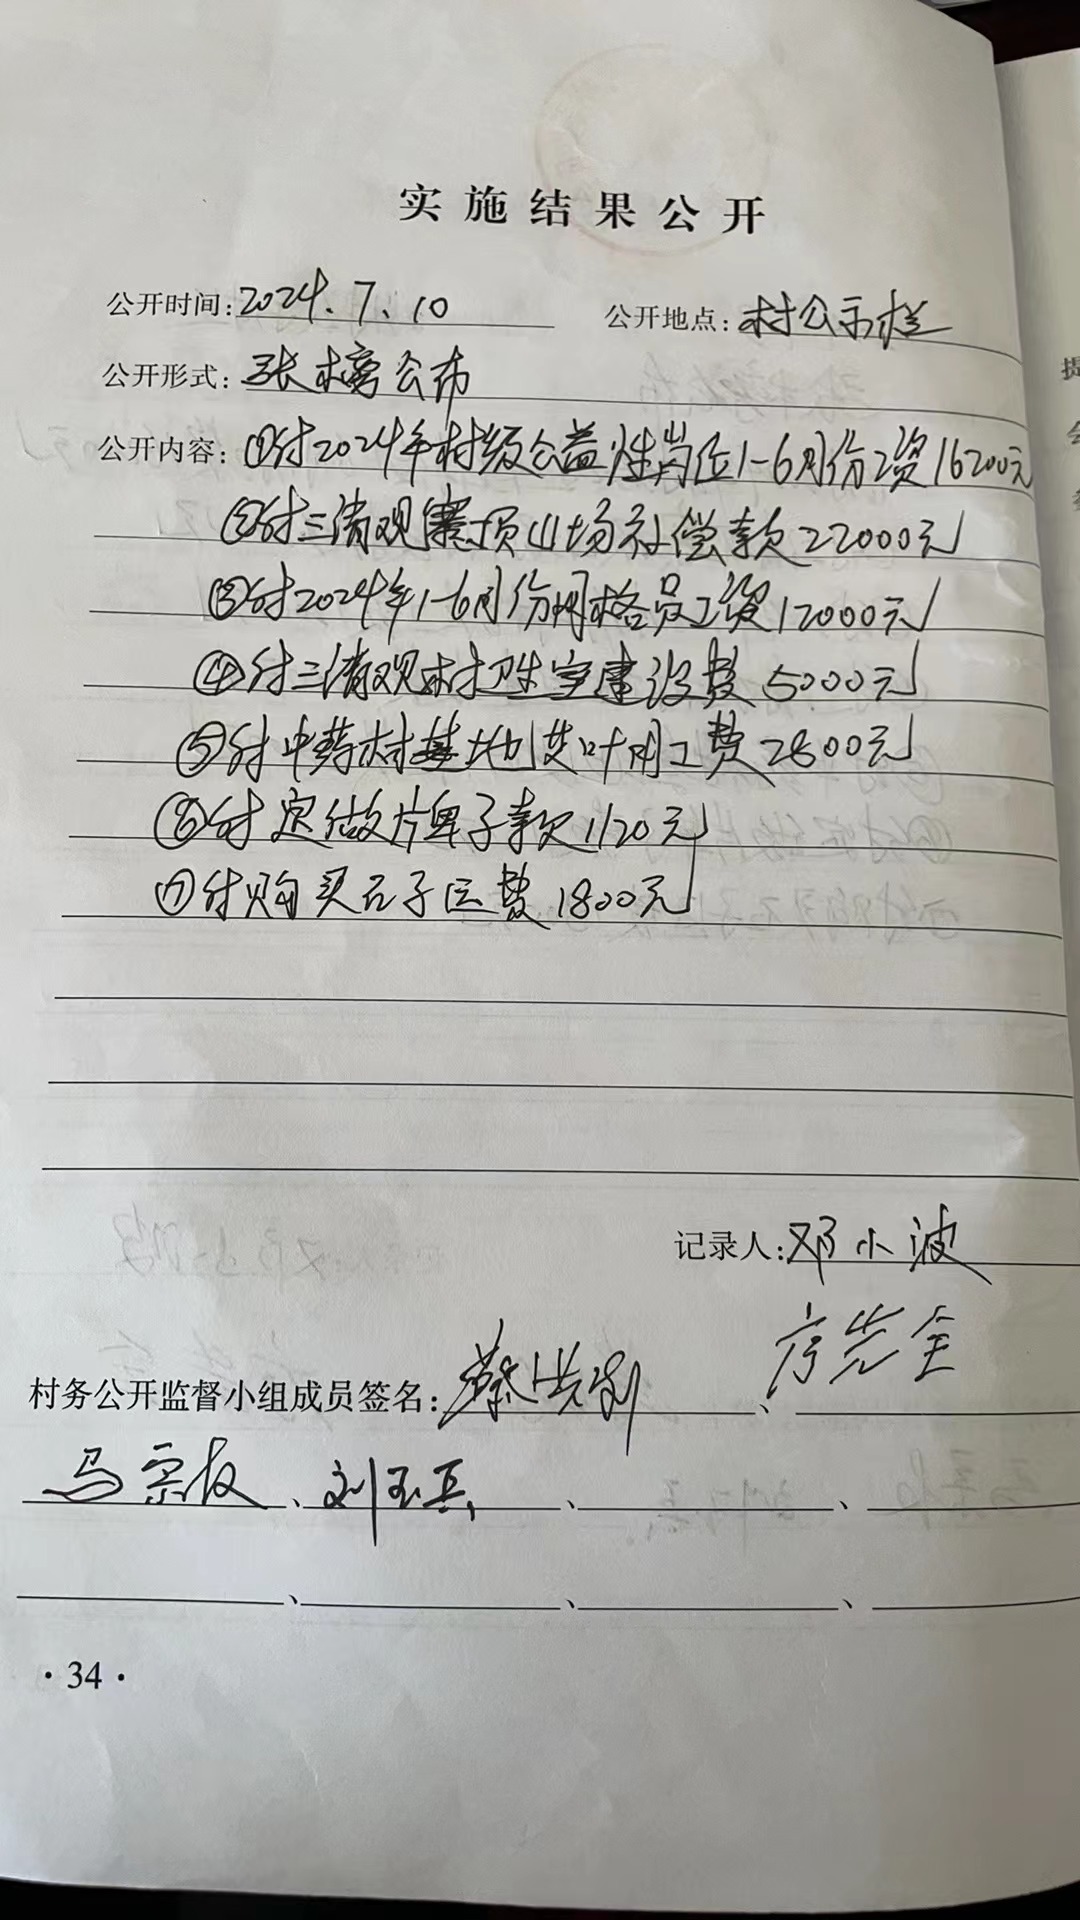 实施结果公开
公开时间:2024.7.10 公开地点:村公示栏
公开形式:张榜公布
公开内容:①付2024年村级公益性岗位1-6月份工资16200元
②付三清观寨顶山场补偿款22000元
③付2024年1-6月份网格员工资12000元
④付三清观村卫生室建设费5000元
⑤付中药材基地艾叶用工费2800元
⑥付定做片牌子款1120元
⑦付购买石子运费1800元
记录人:邓小波
村务公开监督小组成员签名:蔡 、 先全
马宗友、刘玉兵、 、
、 、 、
·34·